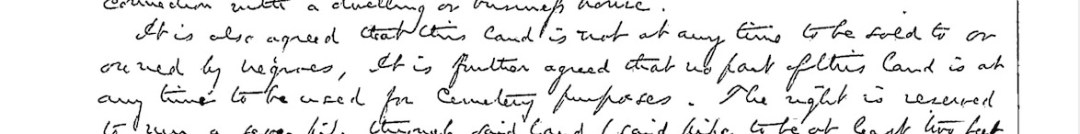 connection with a dwelling or business house.
It is also agreed that this land is not at any time to be sold to or
owned by negroes, It is further agreed that no part of this land is at
any time to be used for Cemetery purposes. The right is reserved
to run a sewer pipe through said land (said pipe to be at least two feet